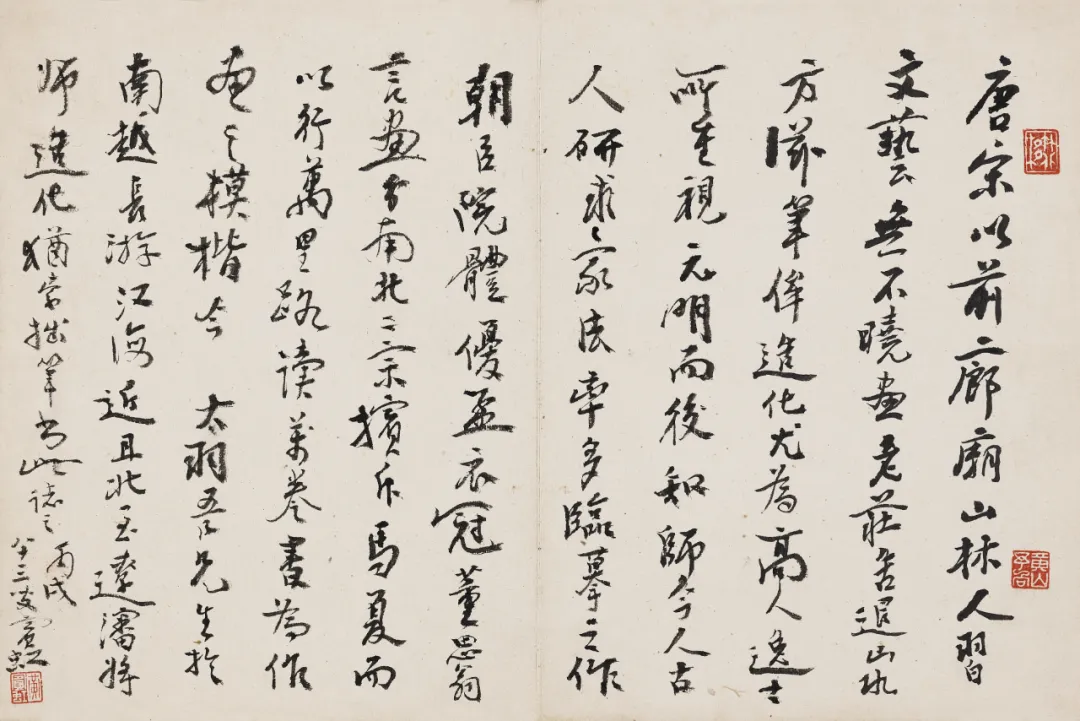 唐宋以前廊廟山林人習
文藝無不曉畫老莊告退山水
方滋筆侔造化尤為高人逸士
所重視元明而後知師今人古
人研求家法率多臨摹之作
朝臣院體優孟衣冠董思翁
言畫分南北二宗擯斥馬夏而
以行萬里路讀萬卷書為作
畫之模楷今 太羽吾兄生於
南越長游江海近且北至遼瀋將
師造化猶索拙筆書此誌之 丙戌
八十三叟賓虹
黃賓虹